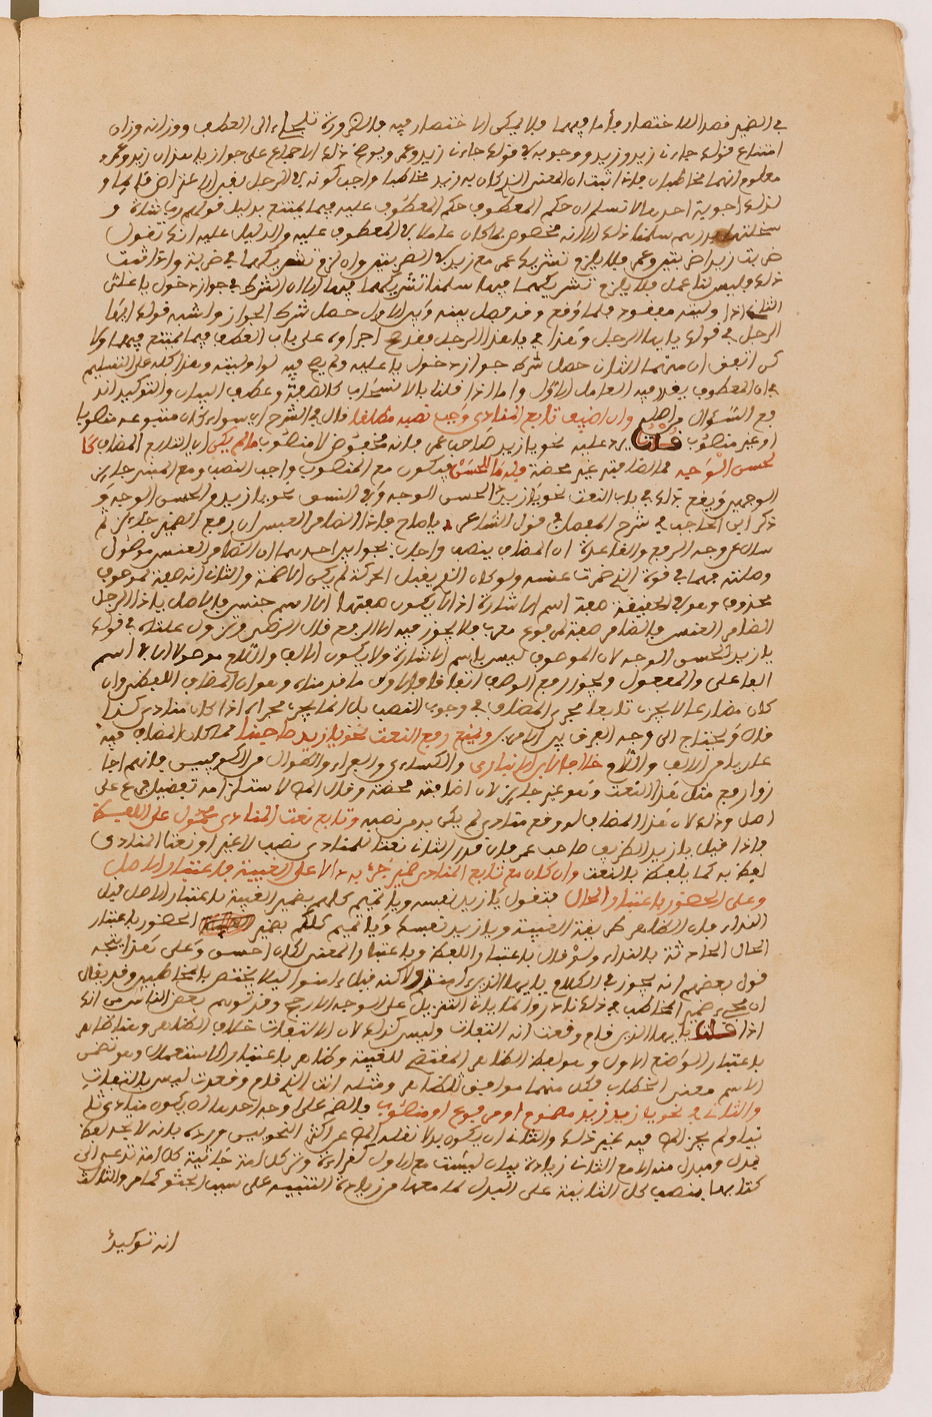 في الضمير قصد الاختصار وأما فيهما فلا يمكن الاختصار فيه فالضرورة تلجئ إلى العطف ووزانه وزان
امتناع قولك جاءني زيد وزيد ووجوبه في قولك جاءني زيد وعمرو ويوضح ذلك الإجماع على جواز يا هذان زيد وعمرو
معلوم انهما مخاطبان فإذا ثبت ان المعنى الذي كان به زيد مخاطبا واجب كونه في الرجل بغير
لذلك أجوبة أحدها لا نسلم ان حكم المعطوف حكم المعطوف عليه فيما يمتنع بدليل قولهم رب شاة و
سخلتها بدرهم سلمنا ذلك إلا انه مخصوص بما كان عاملا في المعطوف عليه والدليل عليه انك تقول
ضربت زيدا ضربتين وعمرا فلا يلزم تشريك عمرو مع زيد في الضربتين وان لزم تشريكهما في ضربة وإذا ثبت
ذلك وليس لنا عمل فلا يلزم تشريكهما فيها سلمنا تشريكهما فيها إلا ان الشرط في جواز دخول يا على
الثاني اذا وليته مفقود فلما وقع وقد فصل بينه وبين الأول حصل شرط الجواز واشبه قولك ايها
الرجل في قولك يا يها الرجل وهذا في يا هذا الرجل
لكن اتفق ان منهما الثاني حصل شرط جواز دخول يا عليه ولم يصح فيه لو وليته وهذا كله على التسليم
في ان المعطوف يقدر فيه العامل الأول واما إذا قلنا بالانسحاب كالصفة وعطف البيان والتوكيد اند
فع السؤال من أصله وان اضيف تابع المنادى وجب نصبه مطلقا قال في الشرح أي سواء كان متبوعه منصوبا
أو غير منصوب قلت يرد عليه نحو يا زيد صاحب عمرو فإنه مخفوض لا منصوب ما لم يكن أي التابع المضاف كا
لحسن الوجه مما إضافته غير محضة فله ما للحسن فيكون مع المنصوب واجب النصب ومع المبني جائز
الوجهين ويقع ذلك في باب النعت نحو يا زيد الحسن الوجه وفي النسق نحو يا زيد والحسن الوجه و
ذكر ابن الحاجب في شرح المفصل في قول الشاعر يا صاح يا ذا الضامر العنس ان رفع الضمير جائز ثم
سأل عن وجه الرفع والقاعدة ان المضاف ينصب وأجاب بجوابين أحدهما ان الضامر العنس موصول
وصلته فهما في قوة الذي ضمرت عنسه ولو كان الذي يقبل الحركة لم يكن إلا ضمة والثاني انه صفة لموصوف
محذوف وهو في الحقيقة صفة اسم الإشارة اذ لا يكون صفتها إلا اسم جنس فالأصل يا ذا الرجل
الضامر العنس فالضامر صفة لمرفوع معرب فلا يجوز فيه إلا الرفع قال
يا زيد الحسن الوجه لان الموصوف ليس باسم الإشارة ولا يكون الألف واللام موصولا إلا في اسم
الفاعل والمفعول ويجوز رفع الوصف اتفاقا فالأولى ما قدمناه وهو ان المضاف اللفظي وان
كان مضارعا لا يجري تابعا مجرى المضاف في وجوب النصب بل إنما يجري مجراه إذا كان منادى كذا
قال ويحتاج إلى وجه الفرق بين الأمرين ويمتنع رفع النعت نحو يا زيد صاحبنا مما كان المضاف فيه
عاريا من الألف واللام خلافا لابن الأنباري والكسائي والفراء والطوال من الكوفيين فإنهم أجا
زوا رفع مثل هذا النعت وهو غير جائز لان إضافته محضة وقال المص لاستلزامه تفضيل فرع على
أصل وذلك لان هذا المضاف لو وقع منادى لم يكن بد من نصبه وتابع نعت المنادى محمول على اللفظ
فإذا قيل يا زيد الظريف صاحب عمرو فان قدر الثاني نعتا للمنادى نصب لا غير أو نعتا للمنادى
لفظ به كما يلفظ بالنعت وان كان مع تابع المنادى ضمير جيء به دالا على الغيبة باعتبار الأصل
وعلى الحضور باعتبار الحال فتقول يا زيد نفسه ويا تميم كلهم بضمير الغيبة باعتبار الأصل قبل
النداء فان الظاهر طريقة الغيبة ويا زيد نفسك ويا تميم كلكم بضمير الحضور باعتبار
الحال الحادثة بالنداء ولو قال باعتبار اللفظ وباعتبار المعنى لكان أحسن وعلى هذا يتجه
قول بعضهم انه يجوز في الكلام يا يها الذين آمنتم ولاكنه قيل آمنوا ليلا يختص بالمخاطبين وقد يقال
ان مجيء ضمير المخاطب في ذلك نادر وإنما يأتي التنزيل على الوجه الأرجح وقد توهم بعض الناس من انك
اذا قلت يا يها الذين قام وقعدت انه التفات وليس كذلك لان الالتفات خلاف الظاهر وهنا ظاهر
باعتبار الوضع الأول وهو لفظ الظاهر المقتضي للغيبة وظاهر باعتبار الاستعمال وهو تضمن
الاسم معنى الخطاب فكل منهما موافق للظاهر ومثله انت الذي قام وقعدت ليس بالتفات
والثاني في نحو يا زيد زيد مضموم أو مرفوع أو منصوب فالضم على أوجه أحدها ان يكون منادى ثا
نيا ولم يجز المص فيه غير ذلك والثاني ان يكون بدلا نقله المص عن أكثر النحويين ورده بانه لا يتحد لفظ
بدل ومبدل منه إلا مع الثاني زيادة بيان ليست مع الأول كقراءة وترى كل أمة جاثية كل أمة تدعى إلى
كتابها بنصب كل الثانية على البدل لما معها من زيادة التنبيه على سبب الجثو كما مر والثالث
انه توكيد